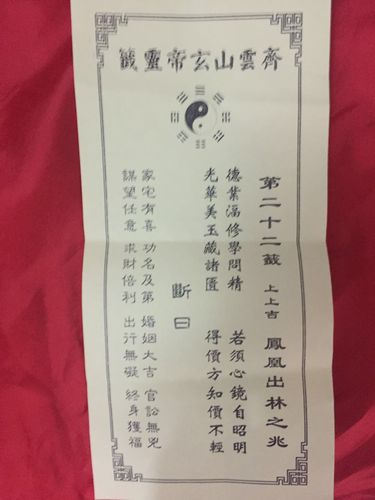 齊雲山玄帝靈籤
第二十二籤 上上吉 鳳凰出林之兆
德業潛修學問精 若須心鏡自昭明
光華美玉藏諸匱 得價方知價不輕
斷曰
家宅有喜 功名及第 婚姻大吉 官訟無兇
謀望任意 求財倍利 出行無礙 終身獲福